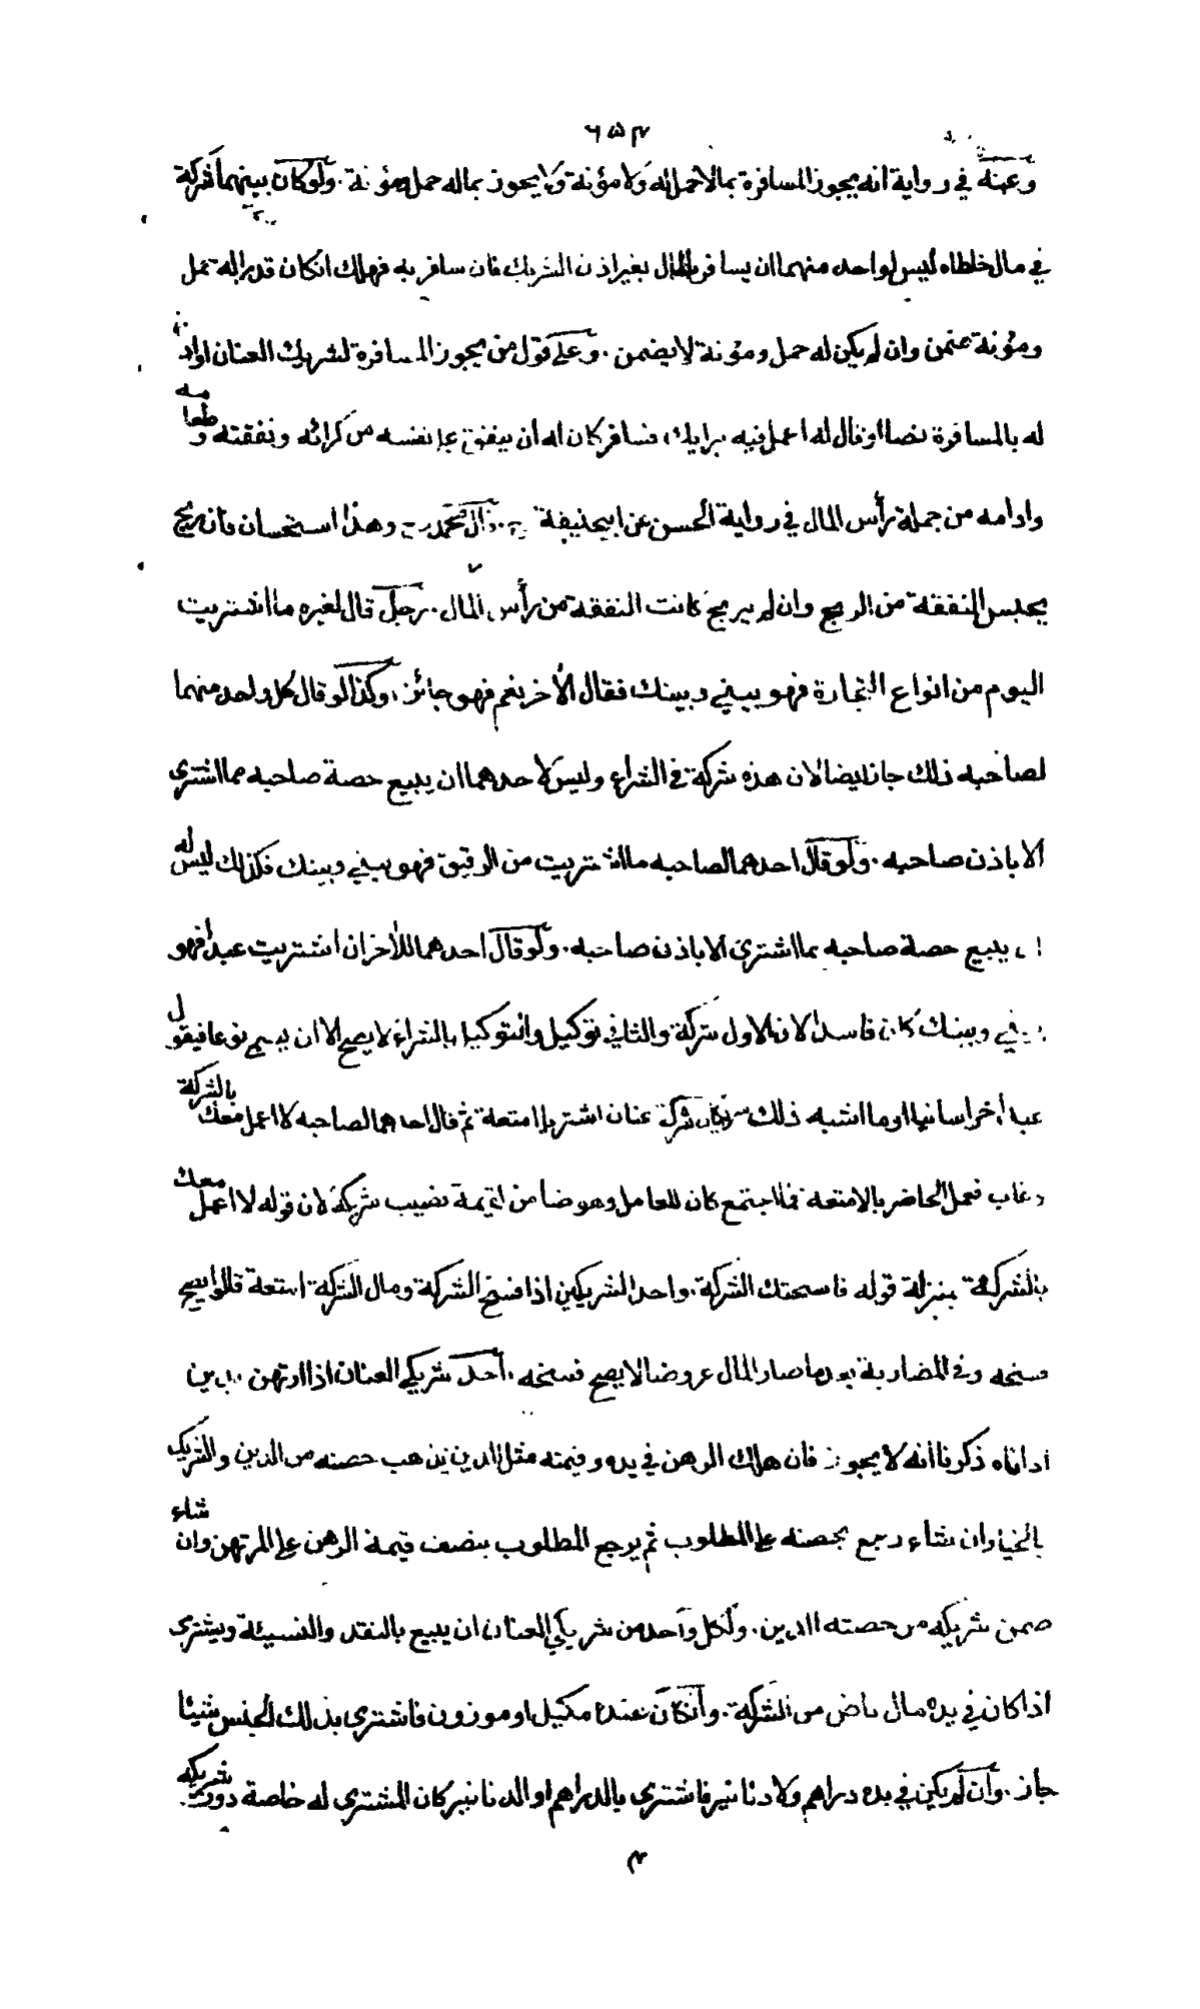 ٦٥٤
وعنه في رواية انه يجوز المسافرة بمالا حمل له ولا مؤنة ولا يجوز بماله حمل ومؤنة . ولو كان بينهما شركة
في مال خلطاه ليس لواحد منهما ان يسافر بالمال بغير اذن الشريك فان سافر به فهلك انكان قدرا له حمل
ومؤنة ضمن وان لم يكن له حمل ومؤنة لا يضمن . وعلى قول من يجوز المسافرة لشريك العنان او اذن
له بالمسافرة نصا او قال له اعمل فيه برايك فسافر كان له ان ينفق على نفسه من كرائه ونفقته وطعامه
وادامه من جملة رأس المال في رواية الحسن عن ابيحنيفة رح . قال محمد رح وهذا استحسان فان ربح
يحبس النفقة من الربح وان لم يربح كانت النفقة من رأس المال . رجل قال لغيره ما اشتريت
اليوم من انواع التجارة فهو بيني وبينك فقال الأخر نعم فهو جائز . وكذا لو قال كل واحد منهما
لصاحبه ذلك جاز ايضا لان هذه شركة في الشراء وليس لاحدهما ان يبيع حصة صاحبه مما اشترى
الا باذن صاحبه . ولو قال احدهما لصاحبه ما اشتريت من الرقيق فهو بيني وبينك فكذلك ليس له
ان يبيع حصة صاحبه مما اشترى الا باذن صاحبه . ولو قال احدهما للأخر ان اشتريت عبدا فهو
بيني وبينك كان فاسدا لان الاول شركة والثاني توكيل والتوكيل بالشراء لا يصح الا ان يسمى نوعا فيقول
عبدا خراسانيا او ما اشبه ذلك شريكان شركة عنان اشتريا امتعة ثم قال احدهما لصاحبه لا اعمل معك بالشركة
وغاب فعمل الحاضر بالامتعة فما اجتمع كان للعامل وهو ضامن لقيمة نصيب شريكه لان قوله لا اعمل معك
بالشركة بمنزلة قوله فاسختك الشركة . واحد الشريكين اذا فسخ الشركة ومال الشركة امتعة قالوا يصح
فسخه وفي المضاربة بعدما صار المال عروضا لا يصح فسخه . احد شريكي العنان اذا ارتهن بدين
اداناه ذكرنا انه لا يجوز فان هلك الرهن في يده وقيمته مثل الدين يذهب حصته من الدين والشريك
بالخيار ان شاء رجع بحصته على المطلوب ثم يرجع المطلوب بنصف قيمة الرهن على المرتهن وان شاء
ضمن شريكه من حصته الدين . ولكل واحد من شريكي العنان ان يبيع بالنقد والنسيئة ويشترى
اذا كان في يده مال ناض من الشركة . وانكان عنده مكيل او موزون فاشترى بذلك الجنس شيئا
جاز . وان لم يكن في يده دراهم ولا دنانير فاشترى بالدراهم او الدنانير كان المشترى له خاصة دون شريكه